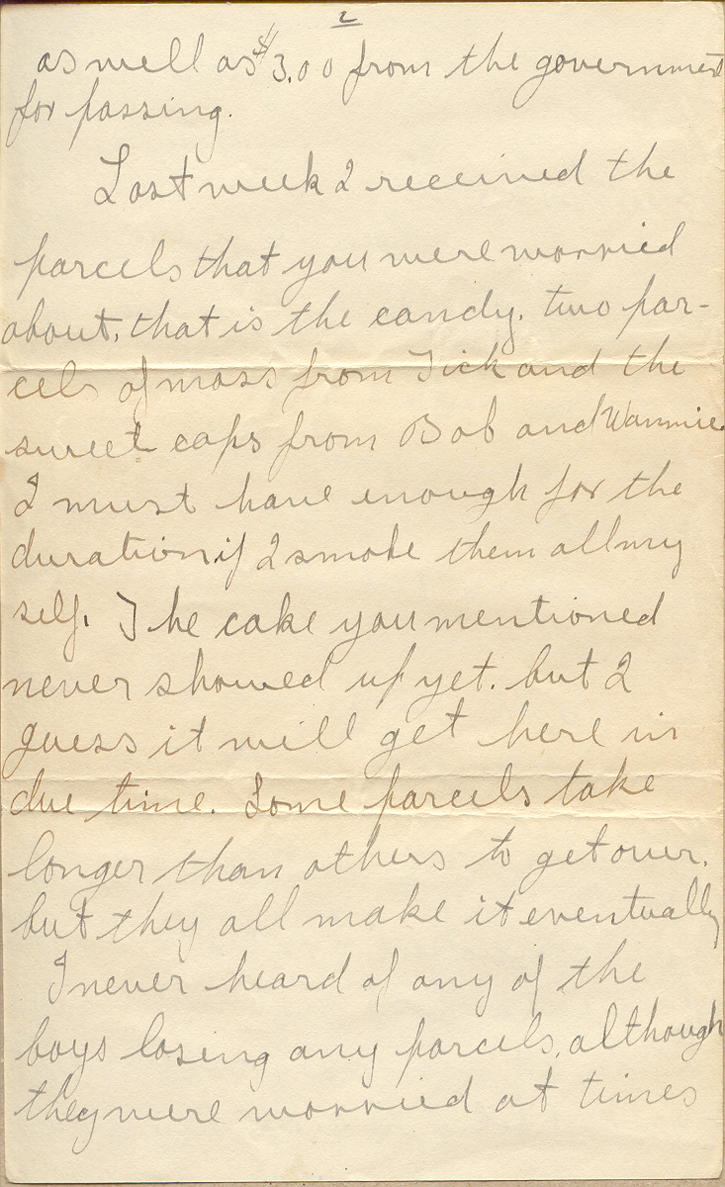 2
as well as $3.00 from the government
for passing.
Last week I received the
parcels that you were worried
about, that is the candy, two par-
cels of mass from Tick and the
sweet caps from Bob and Wannie.
I must have enough for the
duration if I smoke them all my
self. The cake you mentioned
never showed up yet. but I
guess it will get here in
due time. Some parcels take
longer than others to get over,
but they all make it eventually
I never heard of any of the
boys losing any parcels, although
they were worried at times